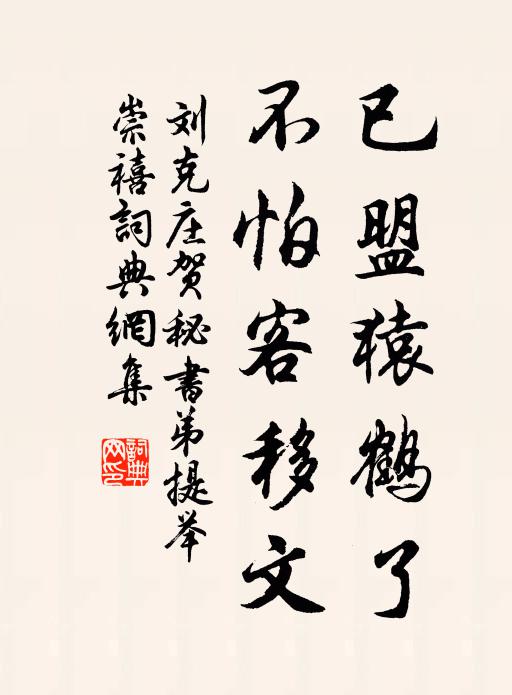 已盟猿鹤了
不怕客移文
刘克庄贺秘书弟提举
崇禧詞典網集
詞典网印